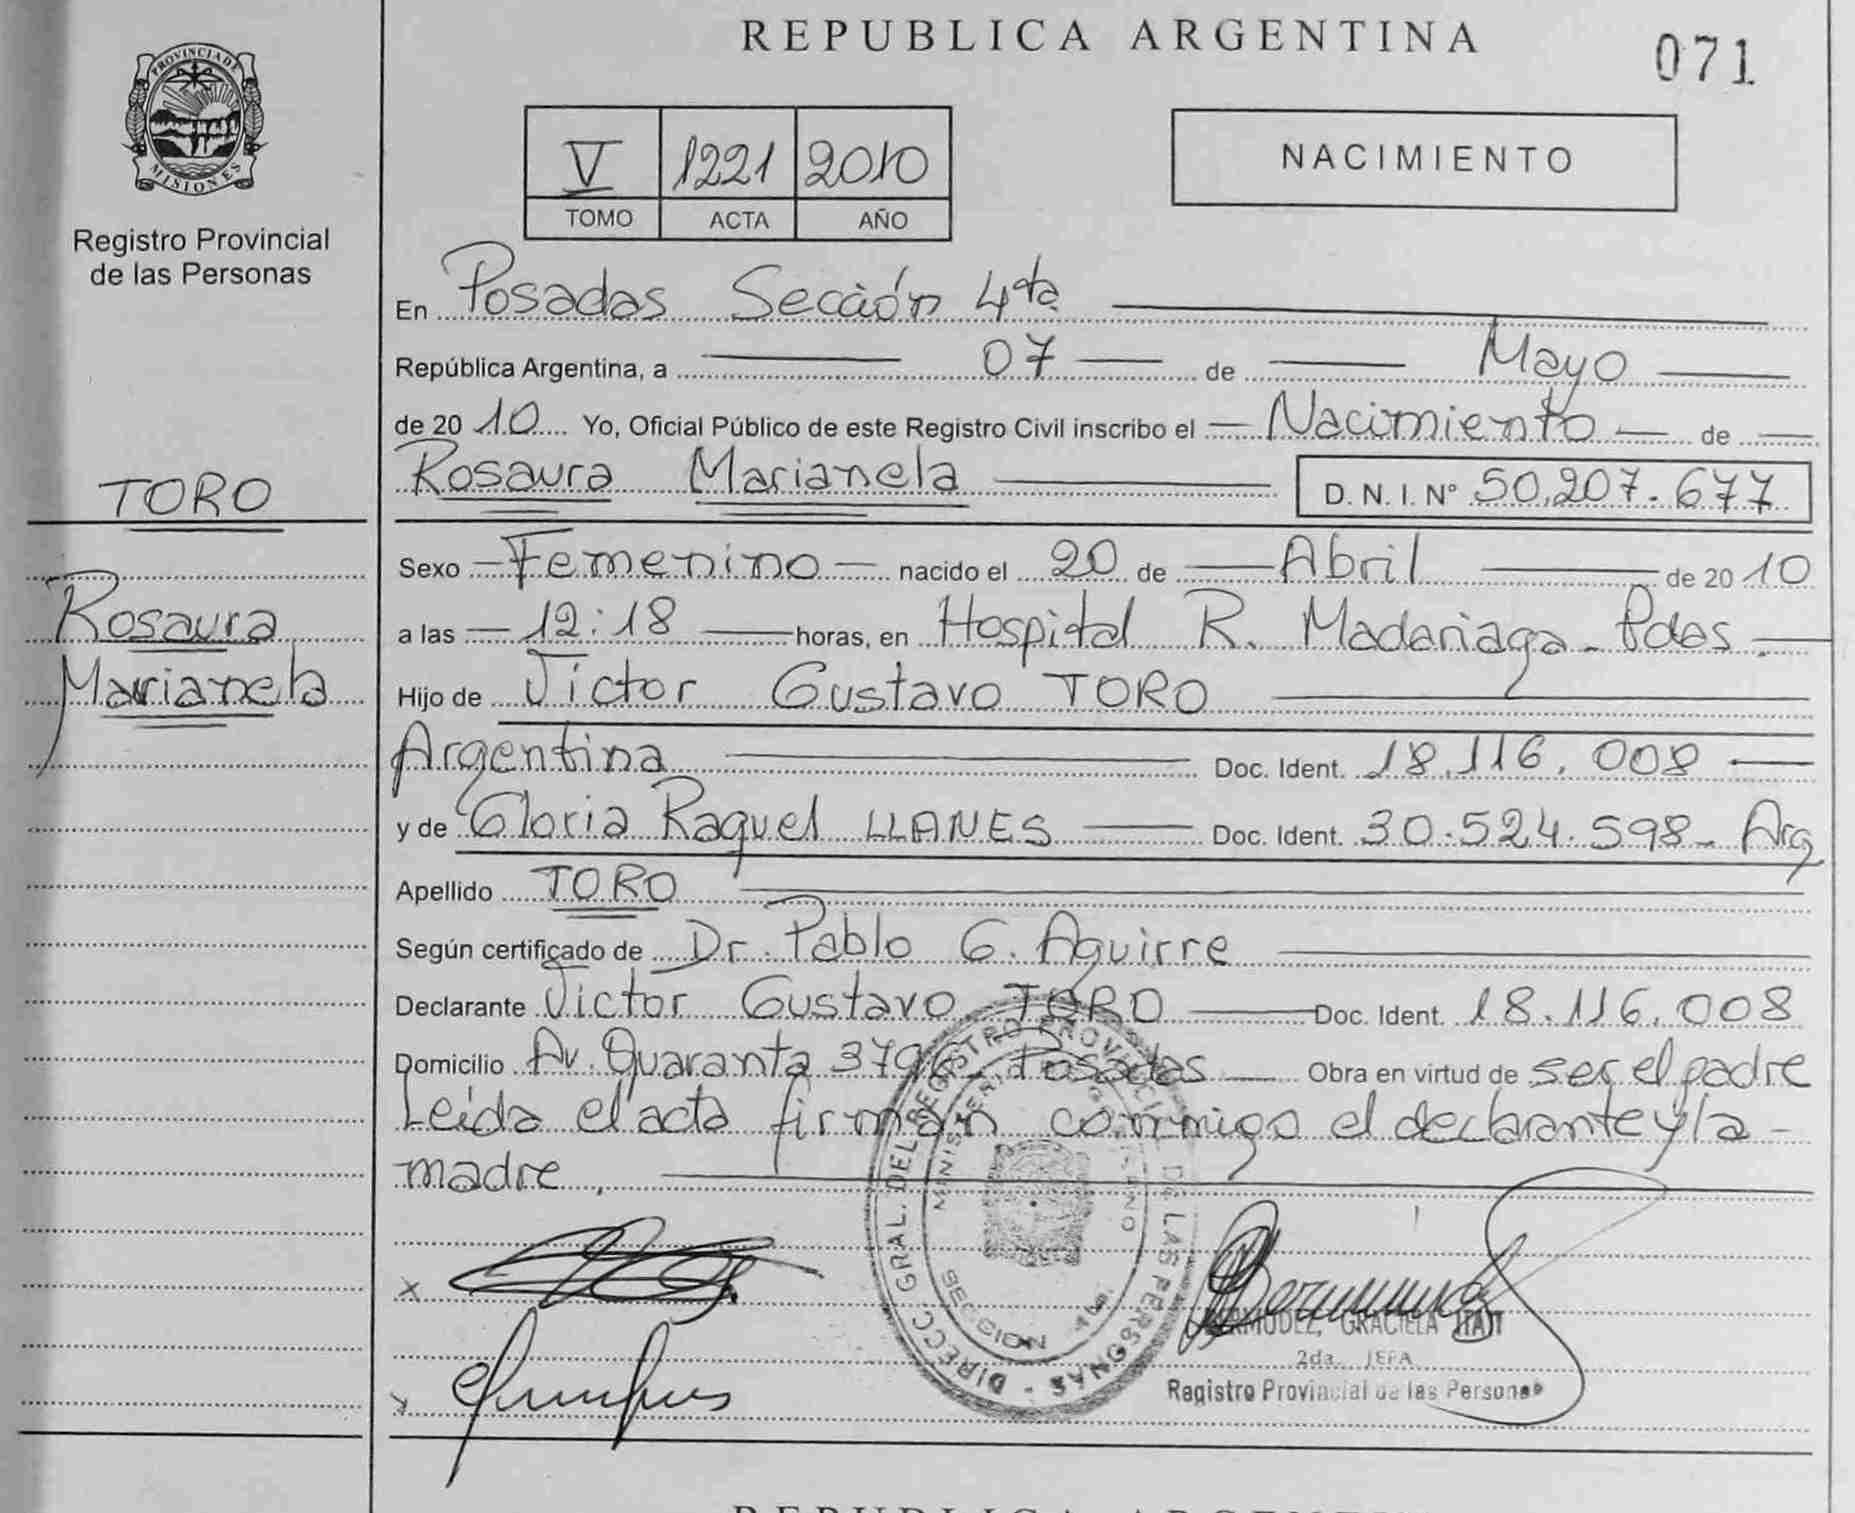 REPUBLICA ARGENTINA
071
PROVINCIA DE
MISIONES
Registro Provincial
de las Personas
V 1221 2010
TOMO ACTA AÑO
NACIMIENTO
En Posadas Sección 4ta
República Argentina, a 07 de Mayo
de 20 10 Yo, Oficial Público de este Registro Civil inscribo el Nacimiento de
Rosaura Marianela D. N. I. Nº 50.207.677
TORO
Rosaura
Marianela
Sexo Femenino nacido el 20 de Abril de 20 10
a las 12:18 horas, en Hospital R. Madariaga - Pdas.
Hijo de Victor Gustavo TORO
Argentina Doc. Ident. 18.116.008
y de Gloria Raquel LLANES Doc. Ident. 30.524.598 - Arg
Apellido TORO
Según certificado de Dr. Pablo G. Aguirre
Declarante Victor Gustavo TORO Doc. Ident. 18.116.008
Domicilio Av. Quaranta 3796 Posadas Obra en virtud de ser el padre
Leída el acta firman conmigo el declarante y la
madre,
DIRECC. GRAL. DEL REGISTRO PROVINCIAL DE LAS PERSONAS
SECCION 4ta.
BERMUDEZ, GRACIELA ITATI
2da. JEFA
Registro Provincial de las Personas